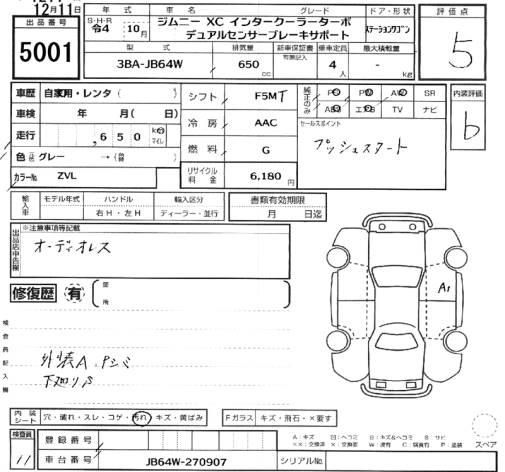 12月11日
出品番号
5001
年式 車名 グレード ドア・形状
S・H・R
令4 10月
ジムニー XC インタークーラーターボ
デュアルセンサーブレーキサポート
ステーションワゴン
型式 排気量 新車保証書 乗車定員 最大積載量
3BA-JB64W 650 cc 有無記入 4人 - kg
評価点
5
車歴 自家用・レンタ( )
車検 年 月( 日)
走行 ,650 km マイル
色 グレー →( )
カラーNo ZVL
シフト F5MT
冷房 AAC
燃料 G
リサイクル料金 6,180 円
純正のみ PS PW AW SR
ABS エアB TV ナビ
セールスポイント
プッシュスタート
内装評価
b
輸入車 モデル年式 ハンドル 輸入区分
右H・左H ディーラー・並行
書類有効期限
月 日迄
出品店申告欄
※注意事項等記載
オーディオレス
修復歴 有 ( 箇所 )
検査員記入欄
外装A
A1
内装シート 穴・破れ・スレ・コゲ・汚れ・キズ・黄ばみ
Fガラス キズ・飛石・×要す
検査員
11
登録番号
車台番号 JB64W-270907 シリアルNo.
A:キズ U:ヘコミ B:キズ&ヘコミ S:サビ
XX:交換済 X:交換要 W:波有 C:腐食有 P:塗装
スペア